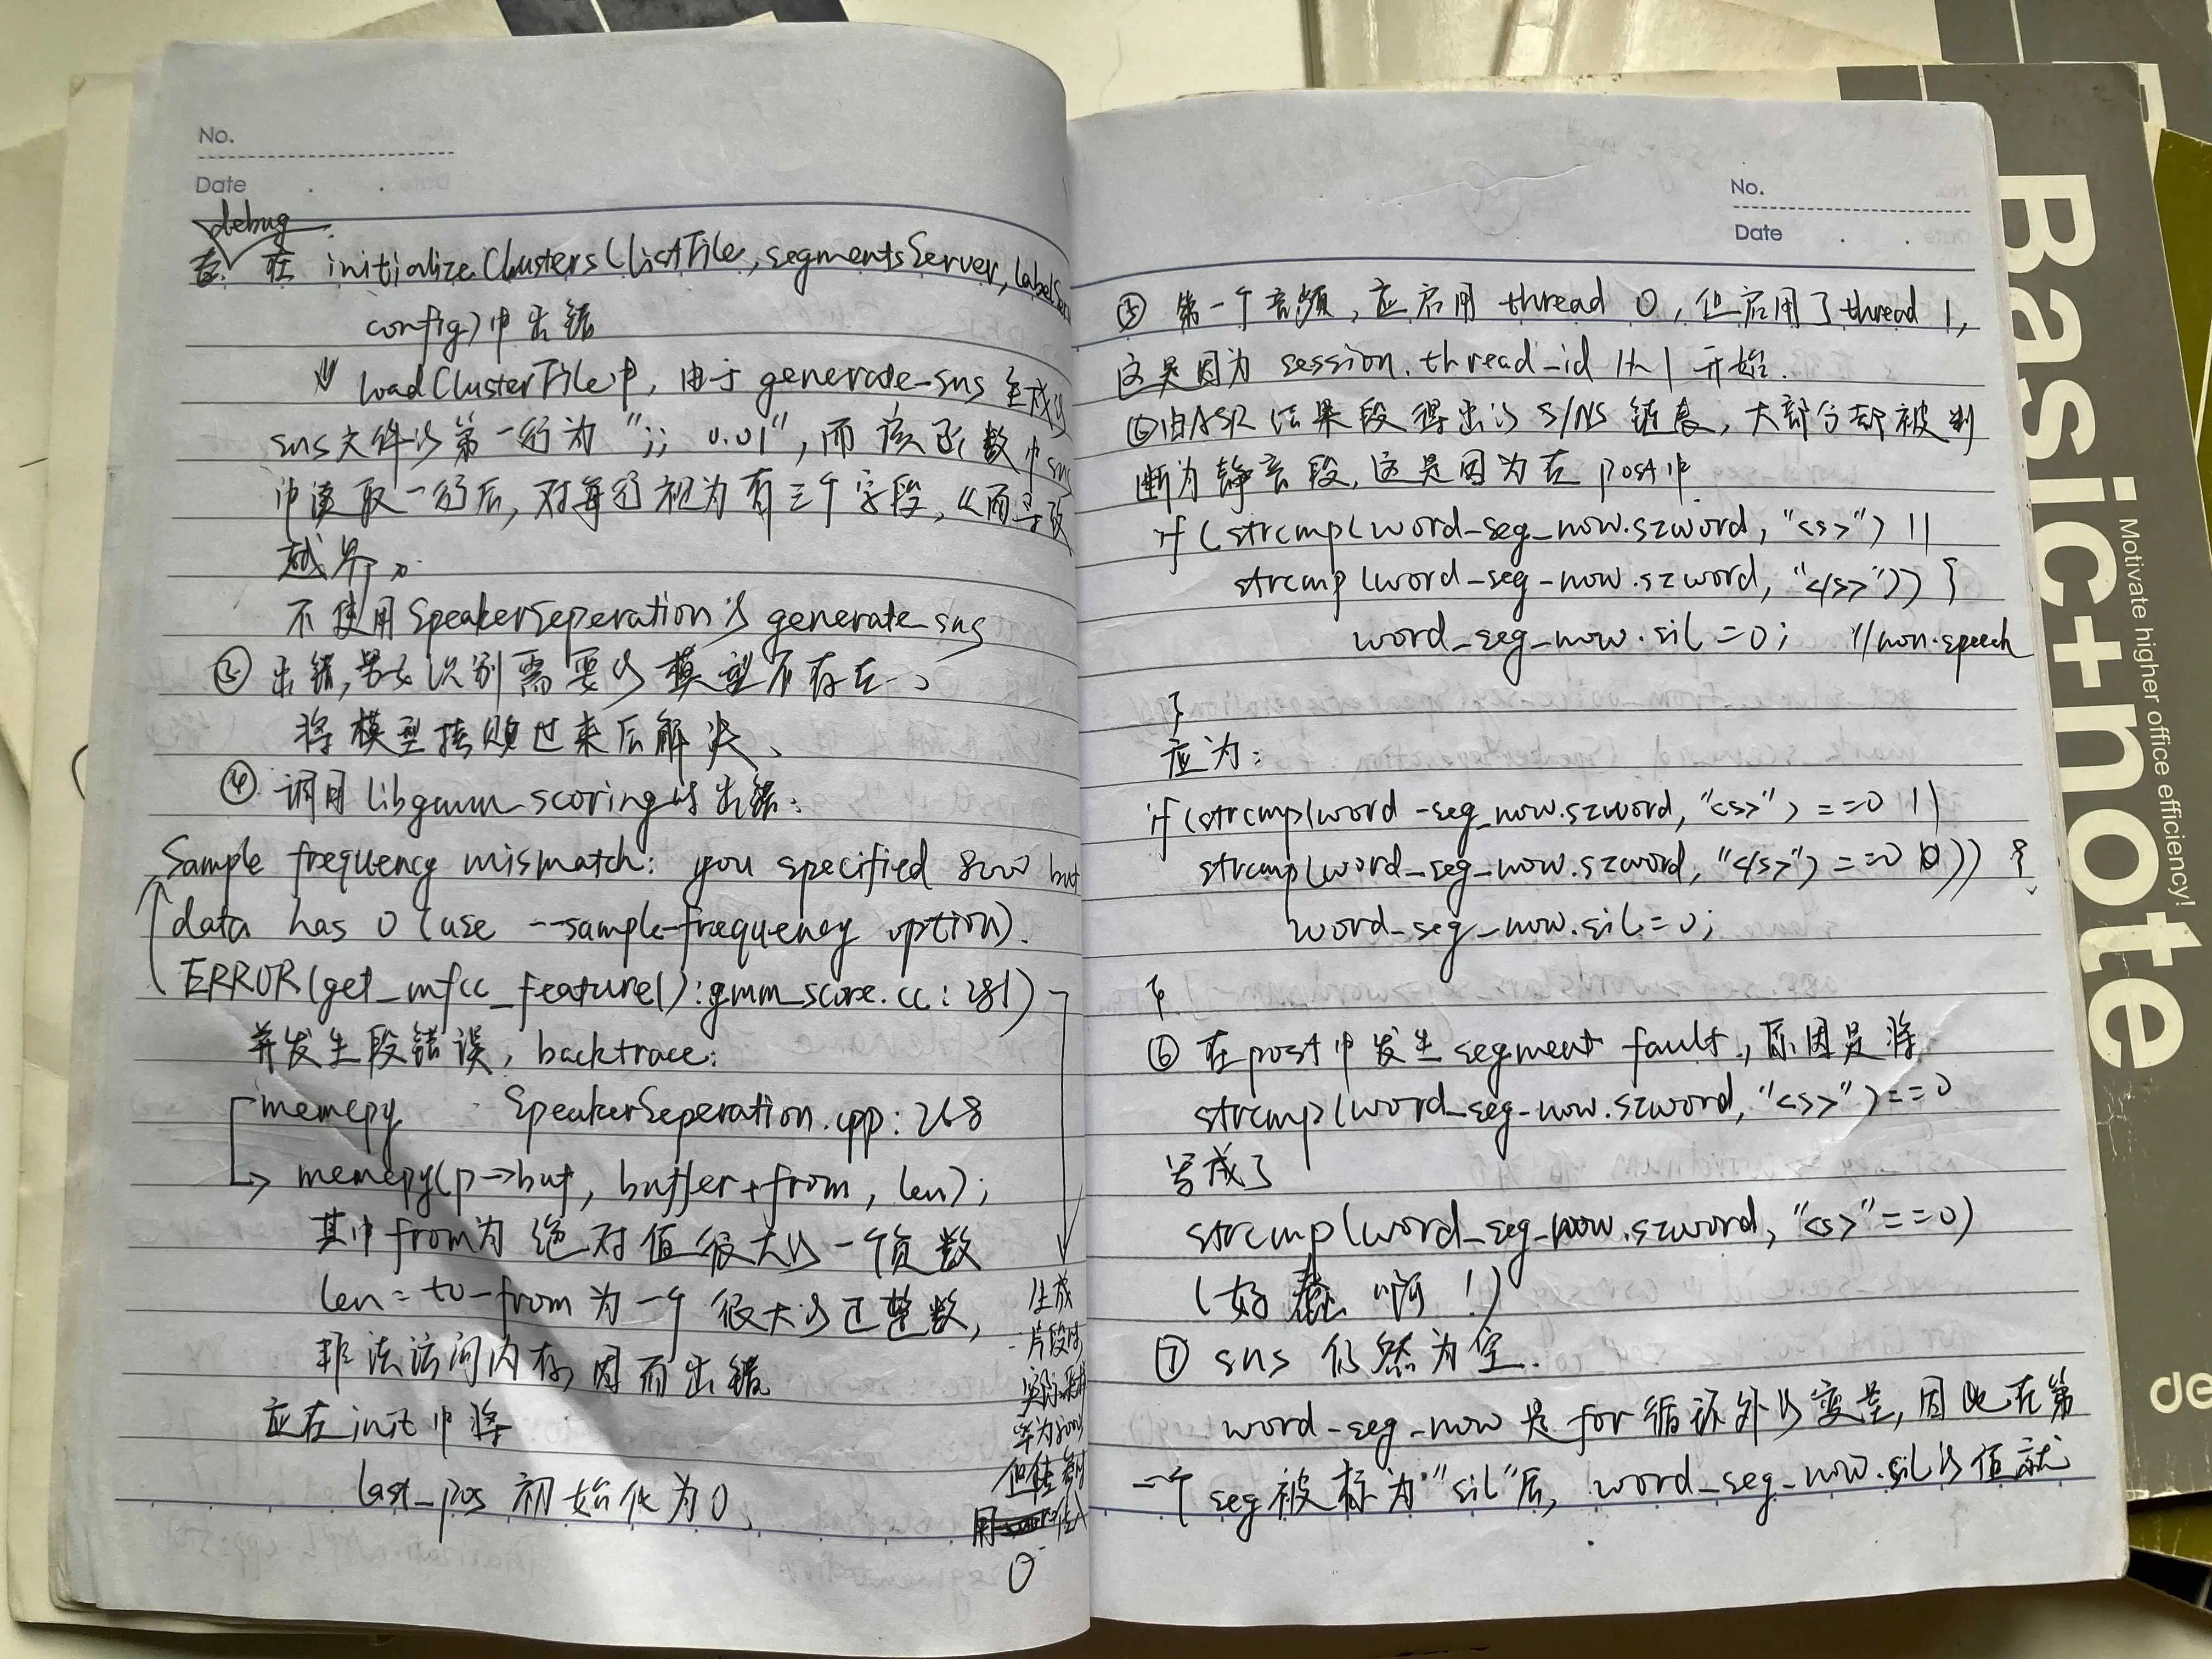 No.
Date
debug
在 在 initializeClusters(listFile, segmentsServer, labelSer
config)中出错
loadClusterFile中, 由于generate_sns生成的
sns文件的第一行为";; 0.01", 而该函数中sns
中读取一行后, 对每行视为有三个字段, 从而导致
越界。
不使用SpeakerSeperation的generate_sns
③ 出错, 男女识别需要的模型不存在、
将模型拷贝过来后解决、
④ 调用libgmm_scoring时出错:
Sample frequency mismatch: you specified 8000 but
data has 0 (use --sample-frequency option).
ERROR(get_mfcc_feature():gmm_score.cc:281)
并发生段错误, backtrace:
memcpy SpeakerSeperation.cpp:268
memcpy(p->buf, buffer+from, len);
其中from为绝对值很大的一个负数
len=to-from为一个很大的正整数,
非法访问内存, 因而出错
应在init中将
last_pos 初始化为0、
生成
片段时
实际采样
率为8000
但传参
用
0
No.
Date
⑤ 第一个音频, 应启用thread 0, 但启用了thread 1,
这是因为session.thread_id 从1开始.
⑥由ASR结果段得出的S/NS链表, 大部分却被判
断为静音段, 这是因为在post中
if(strcmp(word_seg_now.szword, "<s>") ||
strcmp(word_seg_now.szword, "</s>")) {
word_seg_now.sil=0; //non-speech
}
应为:
if(strcmp(word_seg_now.szword, "<s>")==0 ||
strcmp(word_seg_now.szword, "</s>")==0 )) {
word_seg_now.sil=0;
}
⑥ 在post中发生segment fault, 原因是将
strcmp(word_seg_now.szword, "<s>")==0
写成了
strcmp(word_seg_now.szword, "<s>"==0)
(好蠢啊!)
⑦ sns 仍然为空.
word_seg_now是for循环外的变量, 因此在第
一个seg被标为"sil"后, word_seg_now.sil的值就
Basic+note
Motivate higher office efficiency!
de